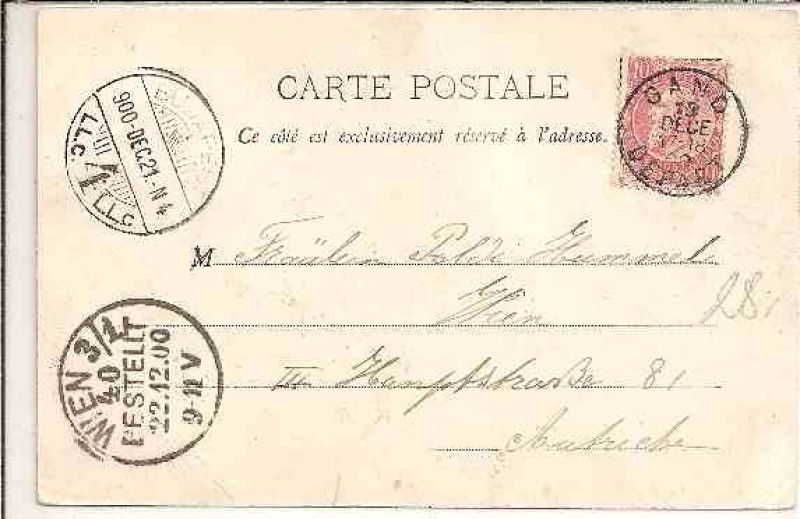 CARTE POSTALE
Ce côté est exclusivement réservé à l'adresse.
GAND
19
DECE
DEPART
10 10
900-DEC 21-N 4
LL.C
LL.C
M Fräulein Poldi Hummel
Wien
III Hauptstrasse 81
Autriche
WIEN 3/1
40
BESTELLT
22.12.00
9-11 V